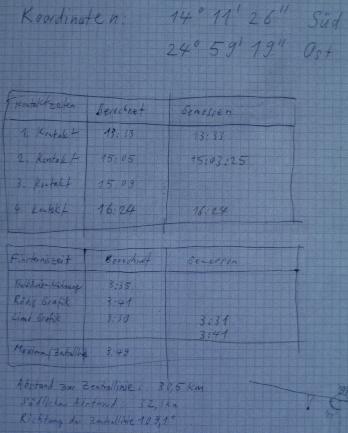 Koordinaten: 14° 11' 26" Süd
24° 59' 19" Ost
Kontaktzeiten Berechnet Gemessen
1. Kontakt 13:33 13:33
2. Kontakt 15:05 15:03:25
3. Kontakt 15:09
4. Kontakt 16:24 16:24
Finsterniszeit Berechnet Gemessen
3:35
Grafik 3:41
Limb Grafik 3:30 3:31
3:41
Maximum/Zentrallinie 3:49
Abstand zur Zentrallinie: 30,5 km
Südlicher Abstand:
Richtung der Zentrallinie 103,1°